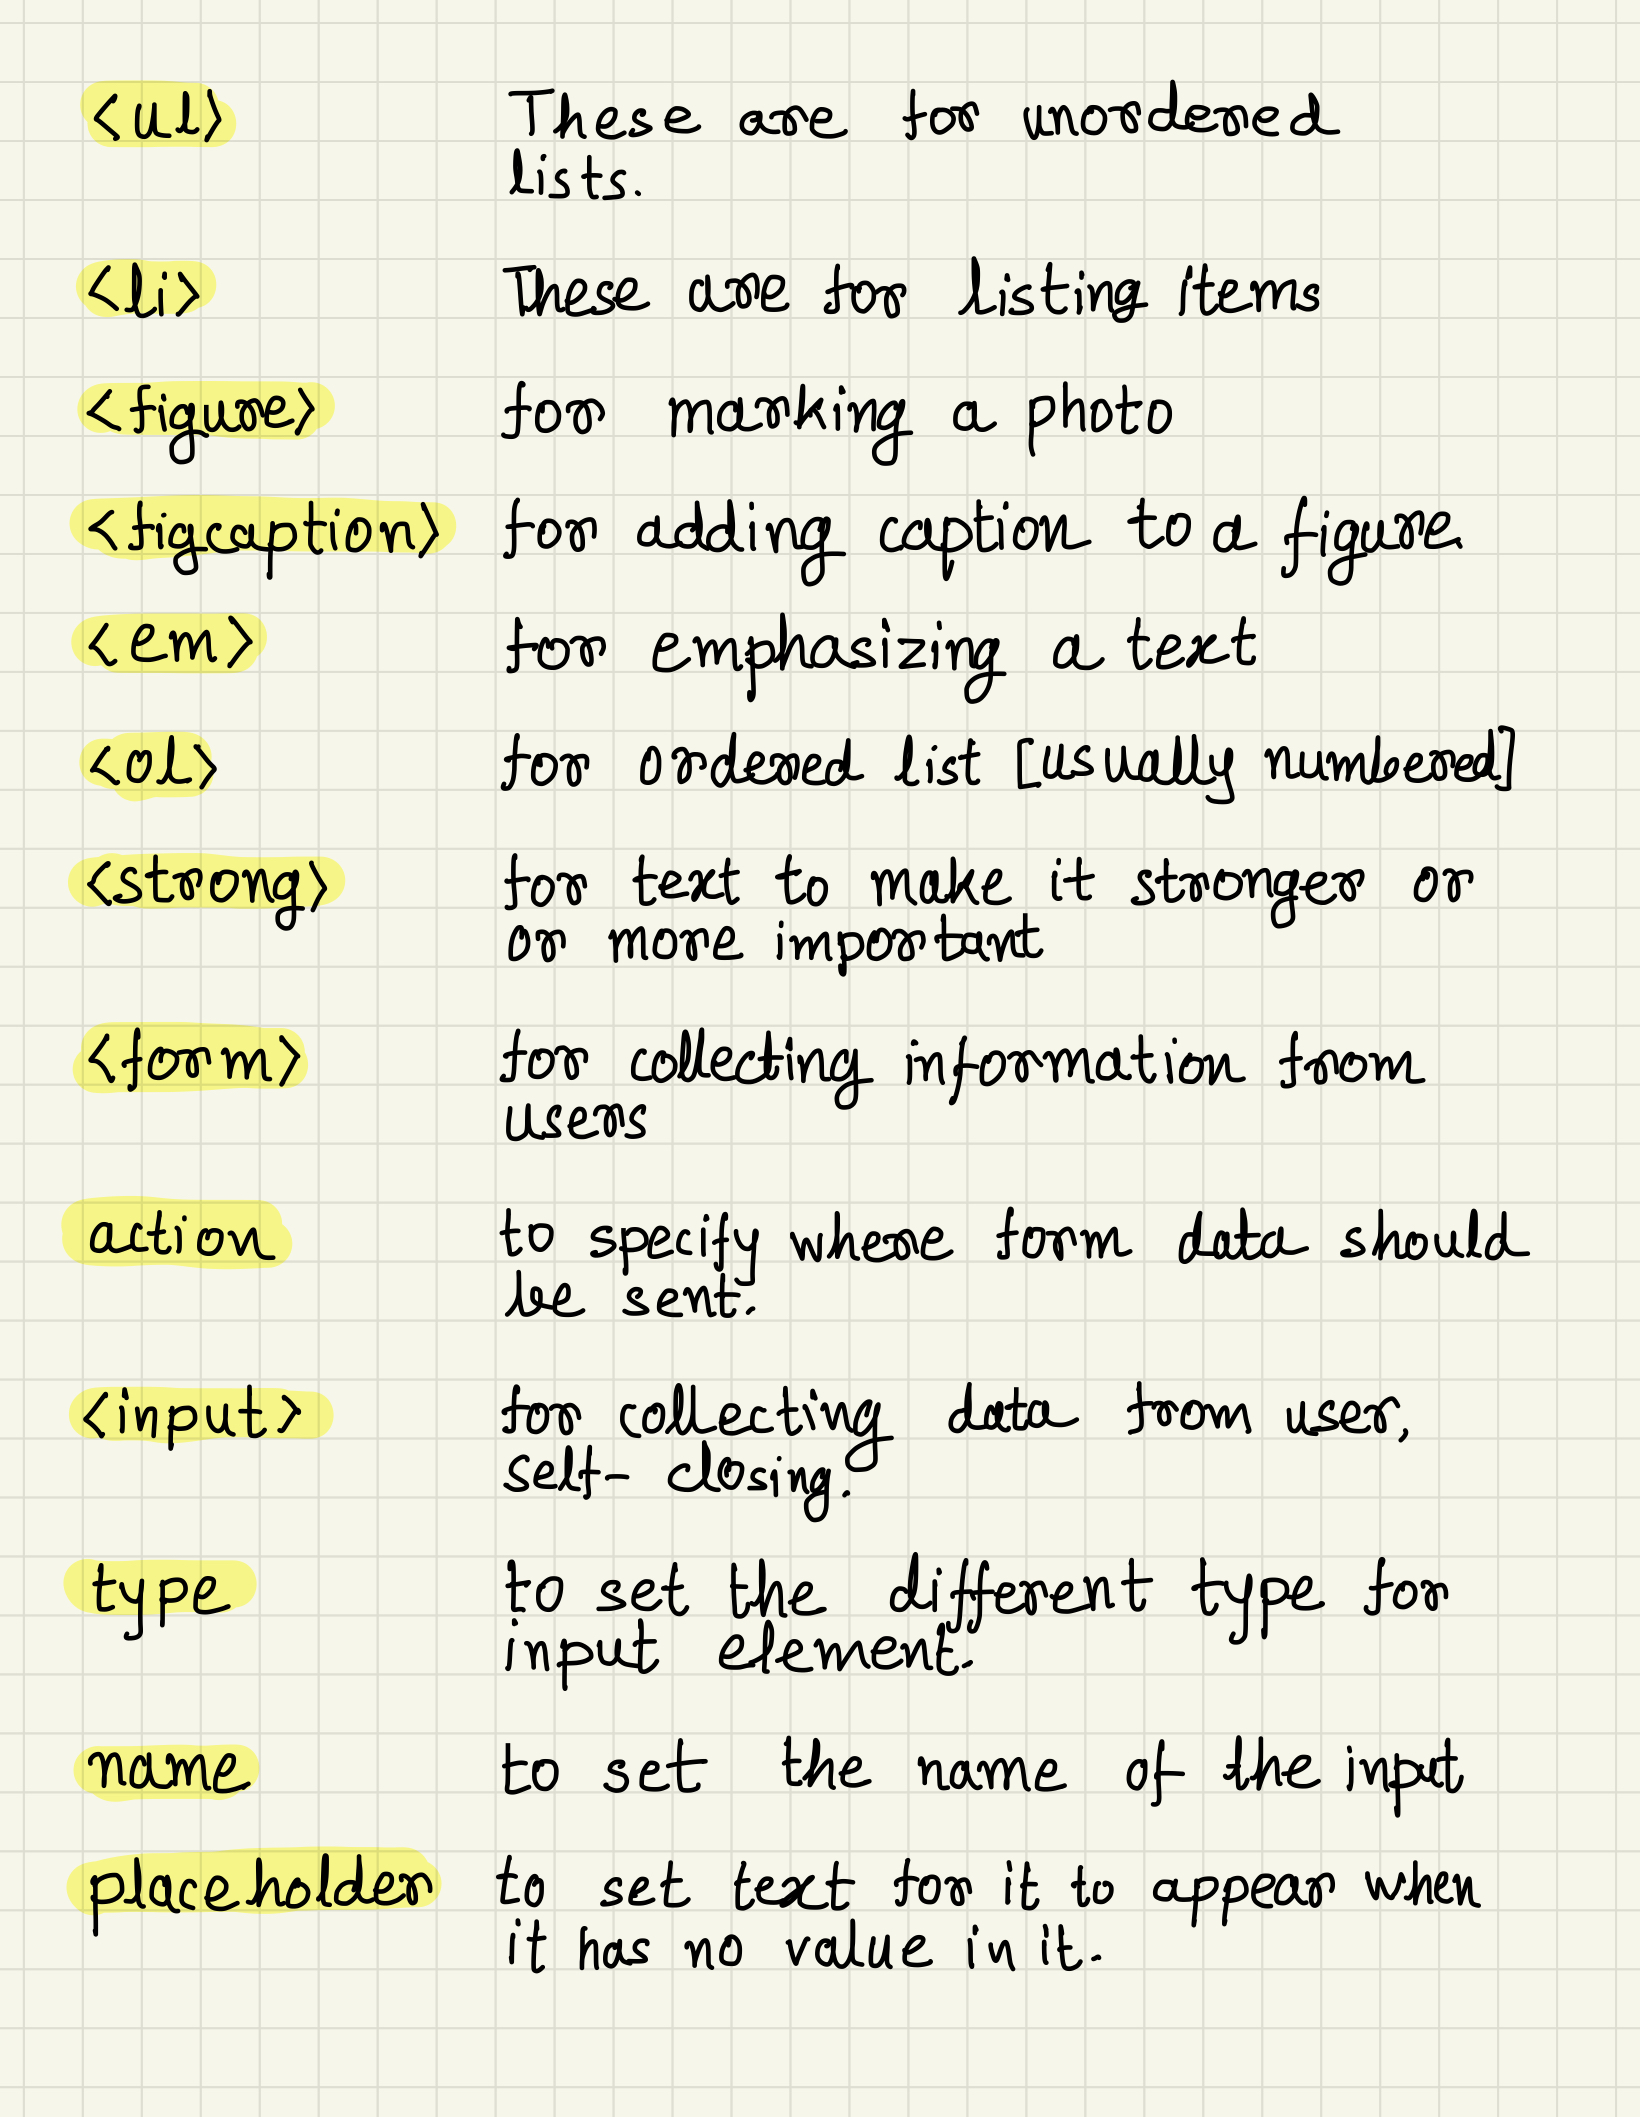 <ul> These are for unordered
lists.
<li> These are for listing items
<figure> for marking a photo
<figcaption> for adding caption to a figure
<em> for emphasizing a text
<ol> for ordered list [usually numbered]
<strong> for text to make it stronger or
or more important
<form> for collecting information from
users
action to specify where form data should
be sent.
<input> for collecting data from user,
self-closing.
type to set the different type for
input element.
name to set the name of the input
placeholder to set text for it to appear when
it has no value in it.